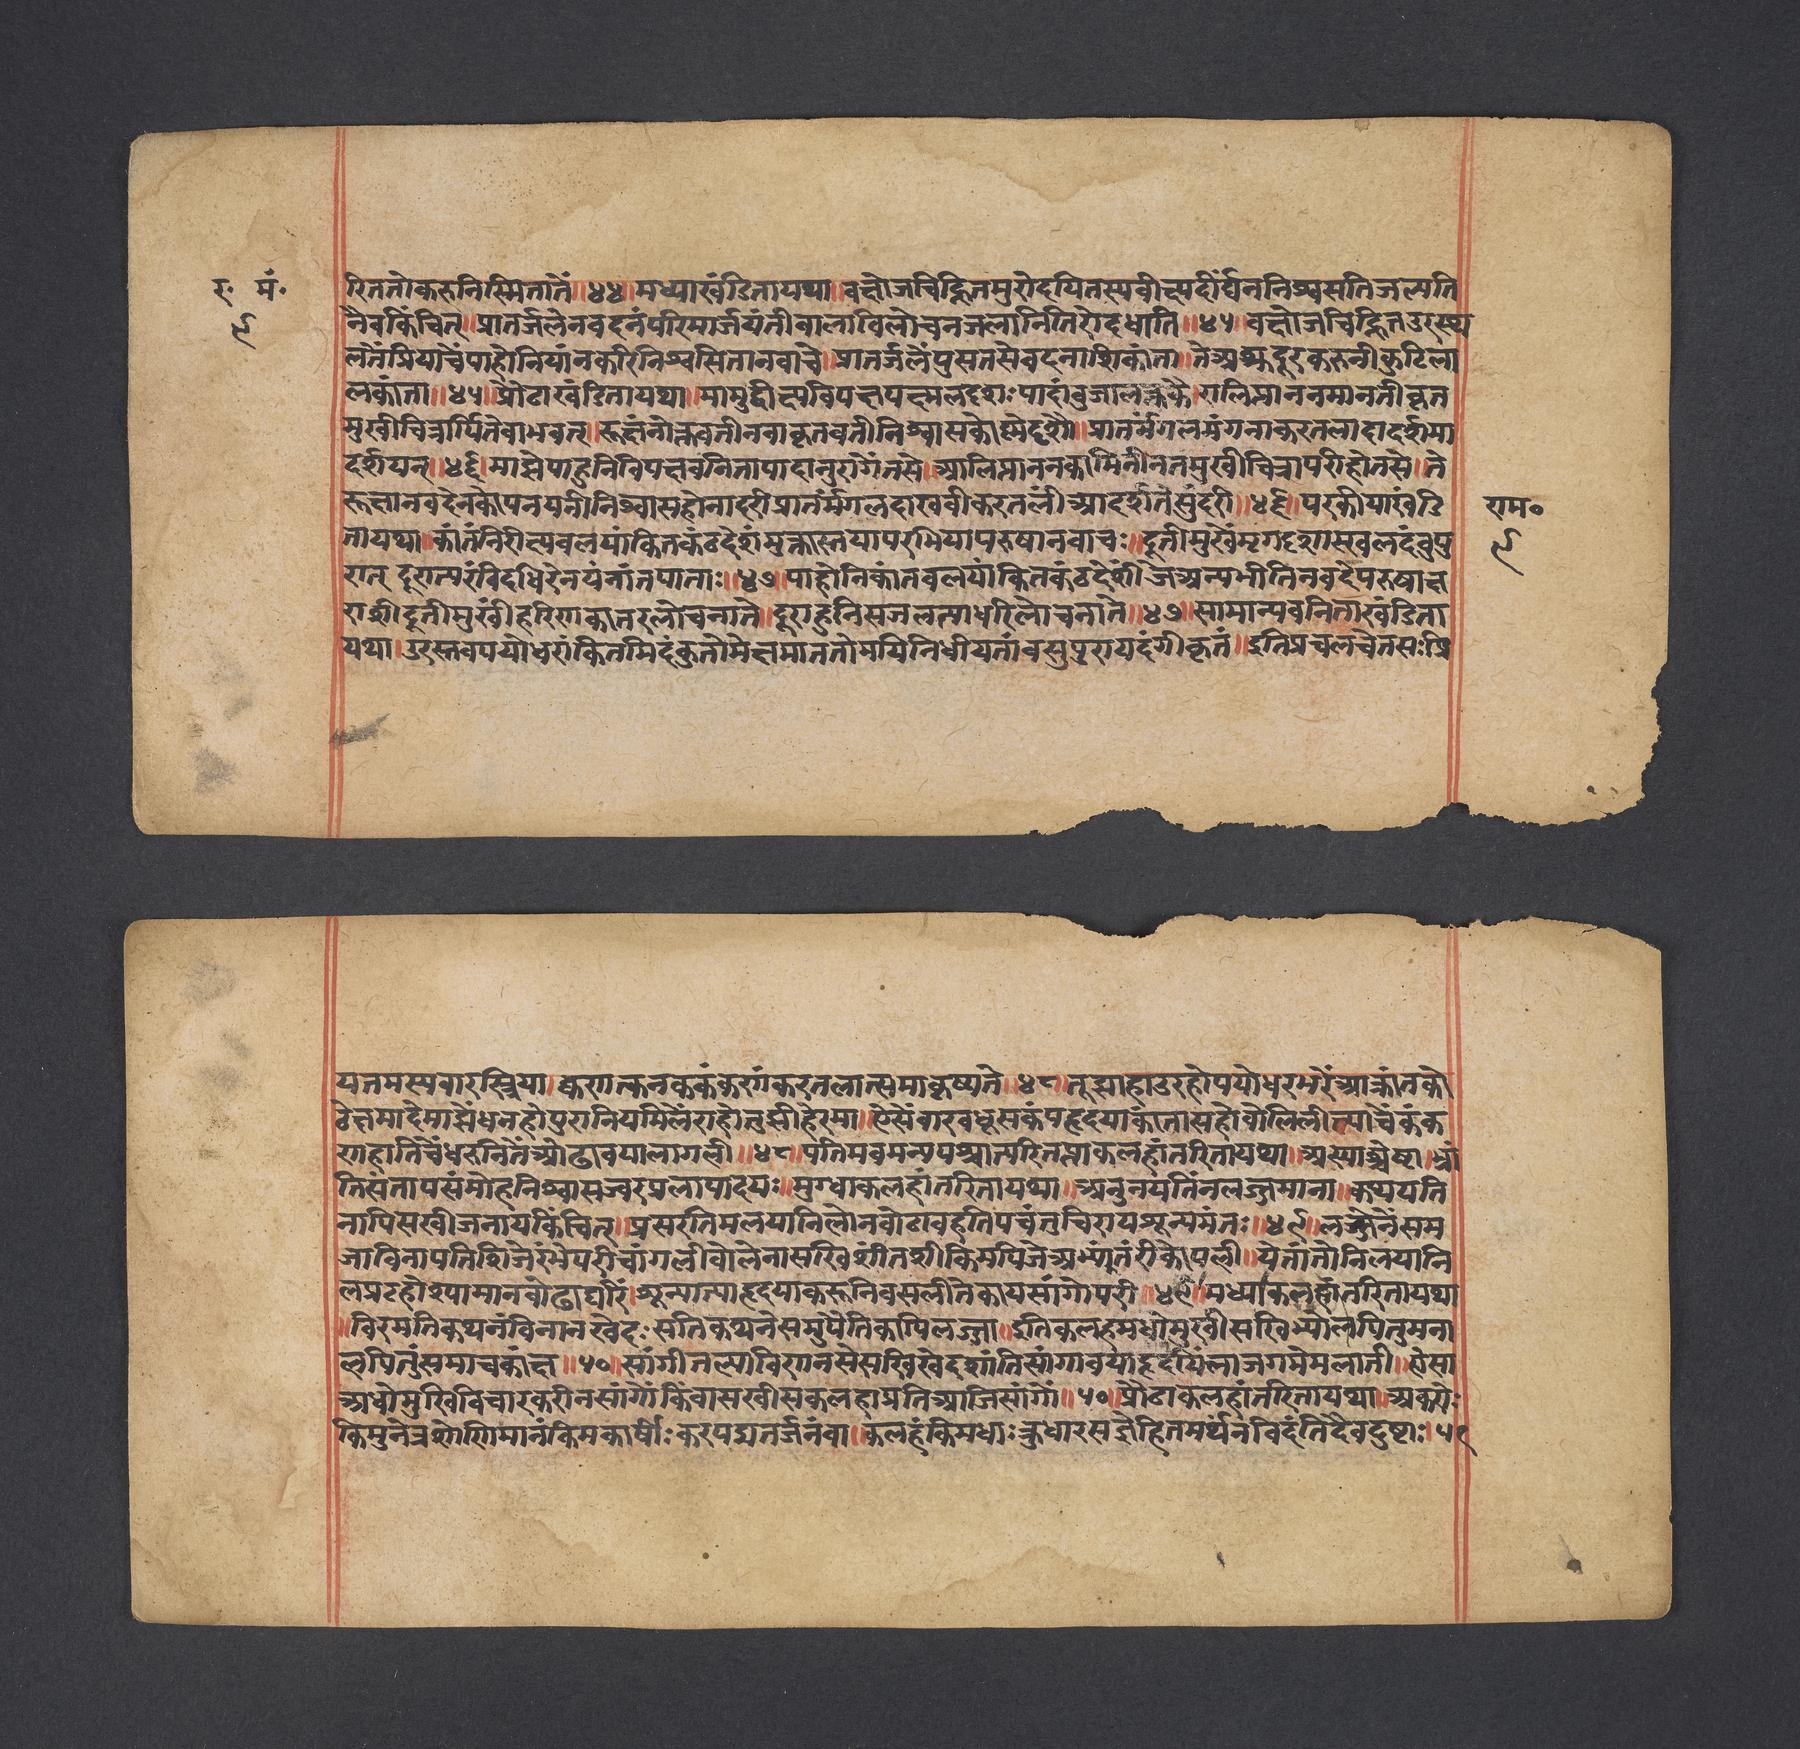 र. मं.
९
रिततोकरुनिस्मितातें॥४४॥मध्याखंडितायथा॥वक्षोजचिह्नितमुरोदयितस्यवीक्ष्यदीर्घंननिश्वसतिजल्पति
नैवकिंचित्॥प्रातर्जलेनवदनंपरिमार्जयंतीबालाविलोचनजलानितिरोदधाति॥४५॥वक्षोजचिह्नितउरस्थ
लतेंप्रियाचेंपाहोनियांनकरीनिश्वसितानवाचे॥प्रातर्जलेंपुसतसेवदनाशिकांता॥तेअश्रुदूरकरुनीकुटिला
लकांता॥४५॥प्रौढाखंडितायथा॥मामुद्वीक्ष्यविपक्षपक्ष्मलदृशःपादांबुजालक्तकैरालिप्ताननमानतीकृत
मुखीचित्रार्पितेवाभवत्॥रूक्षंनोक्तवतीनवाकृतवतीनिश्वासकोष्णेदृशौ॥प्रातर्मंगलमंगनाकरतलादादर्शमा
दर्शयत्॥४६॥माझेपाहुनिविपक्षवनितापादानुरागेंतसे॥आलिप्ताननकामिनीनतमुखीचित्रापरीहोतसे॥ते
रूक्षानवदेनकोपनयनीनिश्वासहोनादरीप्रातर्मंगलदाखवीकरतलीं आदर्शतेसुंदरी॥४६॥परकीयाखंडि
तायथा॥कांतंनिरीक्ष्यवलयांकितकंठदेशंमुक्तास्तयापरभियापरुषानवाचः॥दूतीमुखेमृगदृशास्खलदंबुपु
रात् दूरात्परंविदधिरेनयनांतपाताः॥४७॥पाहोनिकांतवलयांकितकंठदेशींजेअन्यभीतिनवदेपरुषाक्ष
राशी॥दूतीमुखींहरिणाक्षातरलोचनाते॥दूराहुनिसजलत्याधरिलोचनाते॥४७॥सामान्यवनिताखंडिता
यथा॥उरस्तवपयोधरांकितमिदंकुतोमेक्षमाततोमयिनिधीयतांवसुपुरायदंगीकृतं॥इतिप्रचलचेतसःप्रि
राम॰
९
यतमस्यवारस्त्रिया॥क्वणत्कनककंकणंकरतलात्समाकृष्यते॥४८॥तूझाहाउरहोपयोधरभरेंआक्रांतको
ठेक्षमादेमाझेंधनहोपुरानियमिलेंराहोतुझीहेरमा॥ऐसेंवारवधूसकंपहृदयाकांतासहोबोलिलीत्याचेंकंक
णहातिंचेंधरुनितेंओढावयालागली॥४८॥पतिमवमन्यपश्चात्परितप्ताकलहांतरितायथा॥अस्याश्चेष्टा॥भ्रां
तिसंतापसंमोहनिश्वासज्वरप्रलापादयः॥मुग्धाकलहांतरितायथा॥अनुनयतिंनलज्जमाना॥कथयति
नापिसखीजनायकिंचित्॥प्रसरतिमलयानिलेनवोढावहतिपरंतुचिरायशून्यमंतः॥४९॥लज्जेनेंसम
जाविनापतिशिजेरंभेपरीचांगलीबोलेनासखिशींतशीकिमपिजेअभ्यंतरींकोपली॥येतांतोनिलयानि
लप्रटहोश्यामानवोढाघरिं॥शून्यात्माहृदयाकरूनिवसलीतेकायसांगोपरी॥४९॥मध्याकलहांतरितायथा
॥विरमतिकथनंविनानखेदःसतिकथनेसमुपैतिकापिलज्जा॥इतिकलहमधोमुखीसखिभ्योलपितुमना
लपितुंसमाचकांक्ष॥५०॥सांगीतल्याविणनसेसखिखेदशांतिसांगावयाहृदयिंलाजगमेमलाती॥ऐसा
अधोमुखिविचारकरीनसांगोंकिंवासखीसकलहाप्रतिआजिसांगों॥५०॥प्रौढाकलहांतरितायथा॥अकरोः
किमुनेत्रशोणिमानंकिमकार्षीःकरपद्मतर्जनंवा॥कलहंकिमधाःक्रुधारसज्ञेहितमर्थंनविदंतिदैवदुष्टाः॥५१